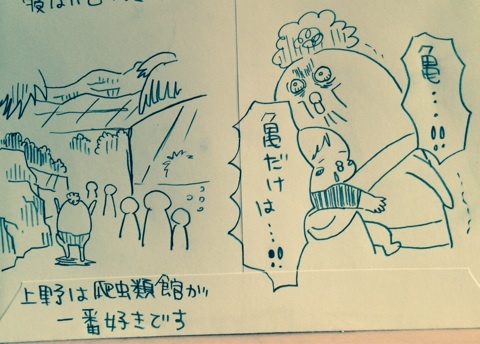 亀…!!
亀だけは…!!
上野は爬虫類館が
一番好きです